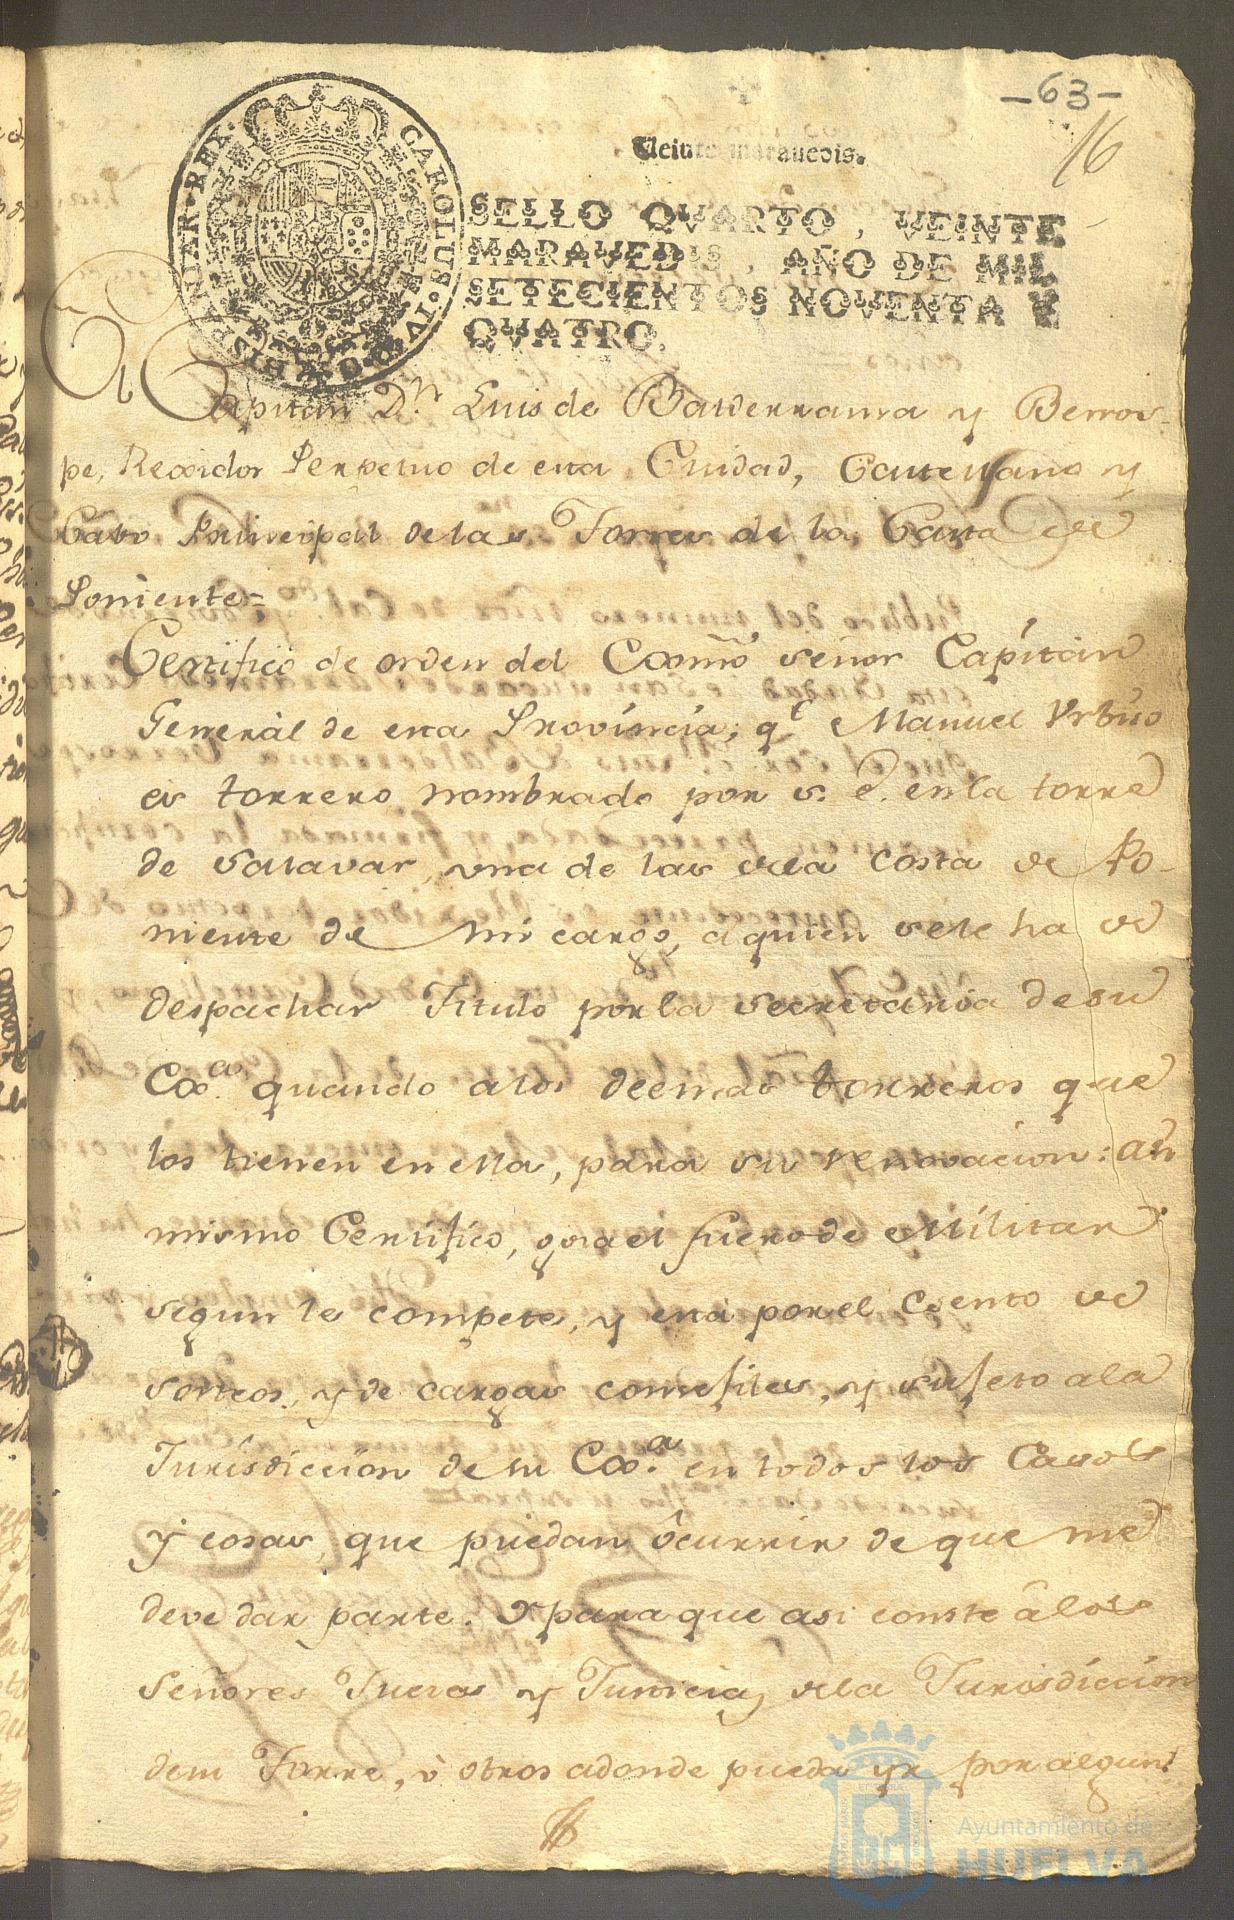 -63-
16
Veinte marauedis.
CAROLUS·IV·D·G·HISPANIAR·REX·
SELLO QVARTO, VEINTE
MARAVEDIS, AÑO DE MIL
SETECIENTOS NOVENTA Y
QVATRO.
Capitan Dn. Luis de Balderrama y Berros-
pe, Rexidor Perpetuo de esta Ciudad, Castellano y
Cabo Principal de las Torres de la Costa de
Poniente=
Certifico de orden del Exmo. señor Capitan
General de esta Provincia; qe. Manuel Urbino
es torrero nombrado por S. E. en la torre
de Salavar, una de las de la costa de Po-
niente de mi cargo, a quien se le ha de
despachar Titulo por la Secretaria de su
Exa. quando a los demas torreros que
los tienen en ella, para su renovacion: asi
mismo Certifico, goza el fuero de Militar
segun le compete, y està por el esento de
sorteos, y de cargas consejiles, y sujeto a la
Jurisdiccion de su Exa. en todos los Casos
y cosas, que puedan ocurrir de que me
deve dar parte. Y para que asi conste â los
Señores Jueces y Justicias de la Jurisdiccion
de su Torre, ù otros adonde pueda yr por algun
Ayuntamiento de
HUELVA